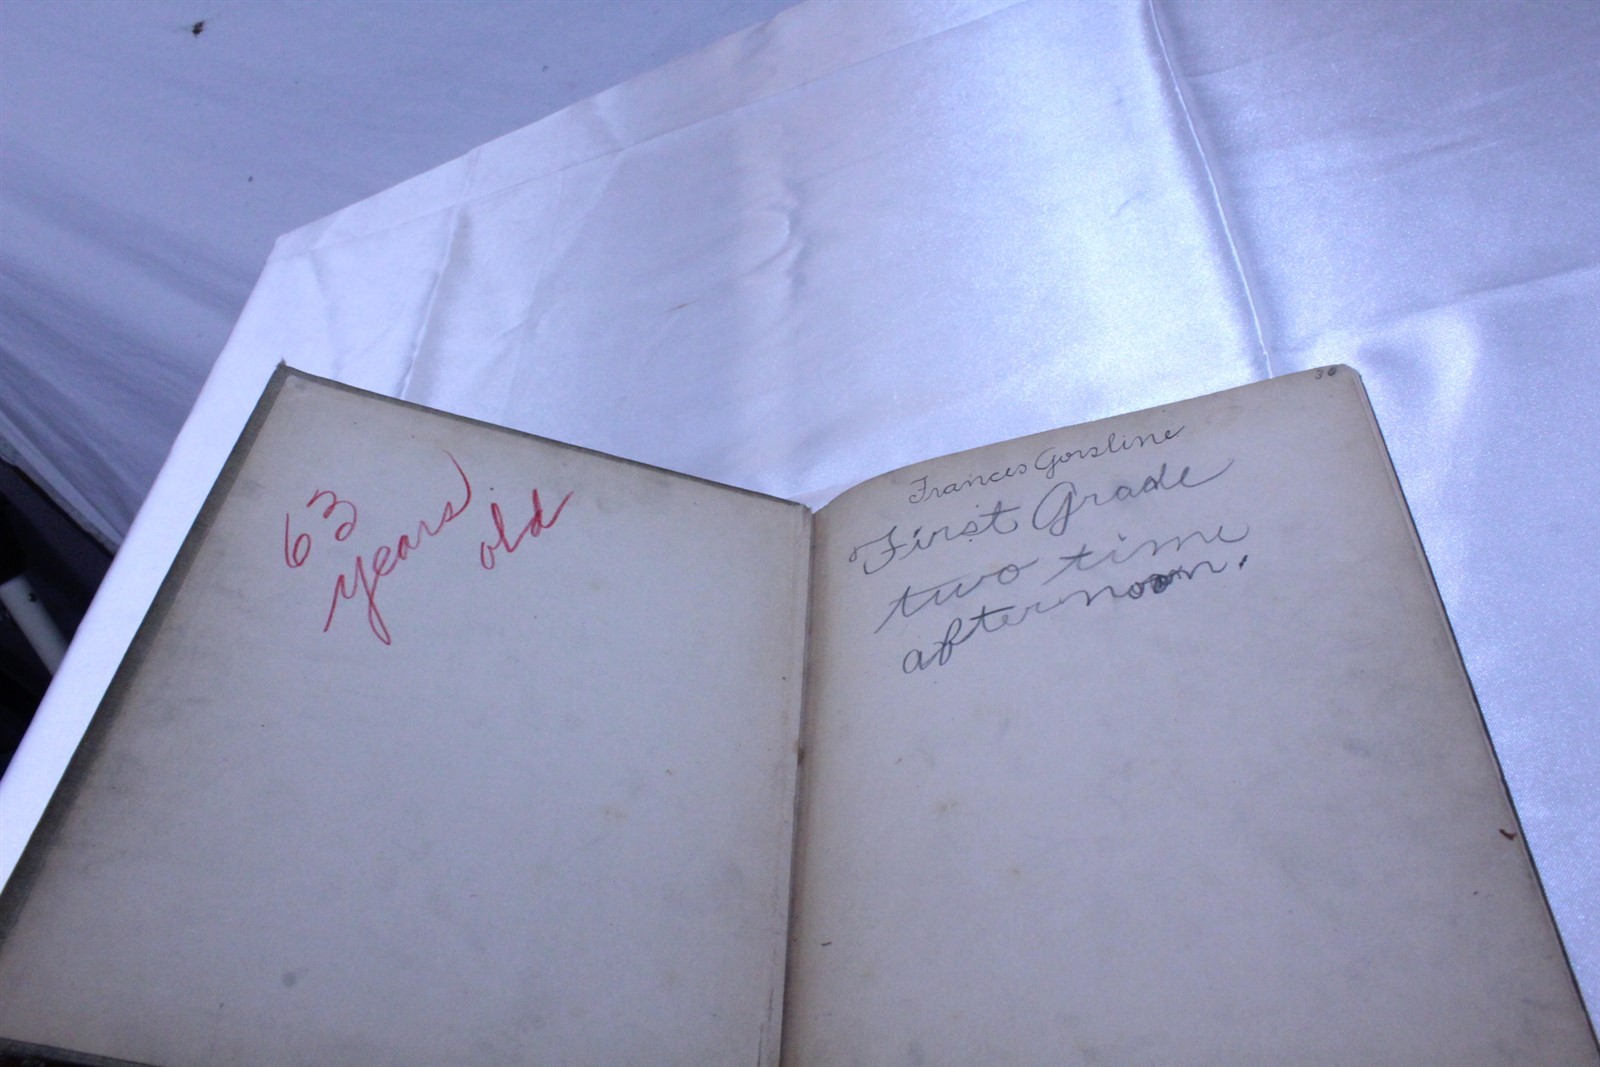 63
years
old
30
Frances Gorsline
First Grade
two time
afternoon.